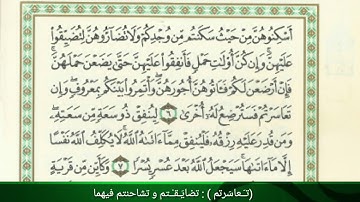 أَسْكِنُوهُنَّ مِنْ حَيْثُ سَكَنتُم مِّن وُجْدِكُمْ وَلَا تُضَآرُّوهُنَّ لِتُضَيِّقُوا۟
عَلَيْهِنَّ ۚ وَإِن كُنَّ أُو۟لَٰتِ حَمْلٍ فَأَنفِقُوا۟ عَلَيْهِنَّ حَتَّىٰ يَضَعْنَ حَمْلَهُنَّ ۚ
فَإِنْ أَرْضَعْنَ لَكُمْ فَـَٔاتُوهُنَّ أُجُورَهُنَّ ۖ وَأْتَمِرُوا۟ بَيْنَكُم بِمَعْرُوفٍ ۖ وَإِن
تَعَاسَرْتُمْ فَسَتُرْضِعُ لَهُۥٓ أُخْرَىٰ ٦ لِيُنفِقْ ذُو سَعَةٍ مِّن سَعَتِهِۦ ۖ
وَمَن قُدِرَ عَلَيْهِ رِزْقُهُۥ فَلْيُنفِقْ مِمَّآ ءَاتَىٰهُ ٱللَّهُ ۚ لَا يُكَلِّفُ ٱللَّهُ نَفْسًا
إِلَّا مَآ ءَاتَىٰهَا ۚ سَيَجْعَلُ ٱللَّهُ بَعْدَ عُسْرٍ يُسْرًا ٧ وَكَأَيِّن مِّن قَرْيَةٍ
(تـَعاسَرتم) : تضايَـقـْـتم و تشاحنتم فيهما